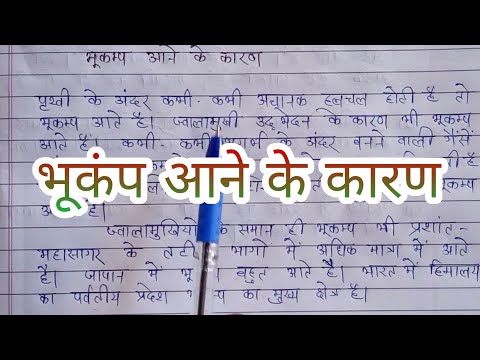 भूकम्प आने के कारण
पृथ्वी के अंदर कभी-कभी अचानक हलचल होती है तो
भूकम्प आते है। ज्वालामुखी उद्भेदन के कारण भी भूकम्प
आते है। कभी- के अंदर बनने वाली गैसें
भूकंप आने के कारण
है।
ज्वालामुखियों के समान ही भूकम्प भी प्रशांत-
महासागर के भागों में अधिक मात्रा में आते
है। जापान में बहुत आते है। भारत में हिमालय
का पर्वतीय प्रदेश का मुख्य क्षेत्र है।